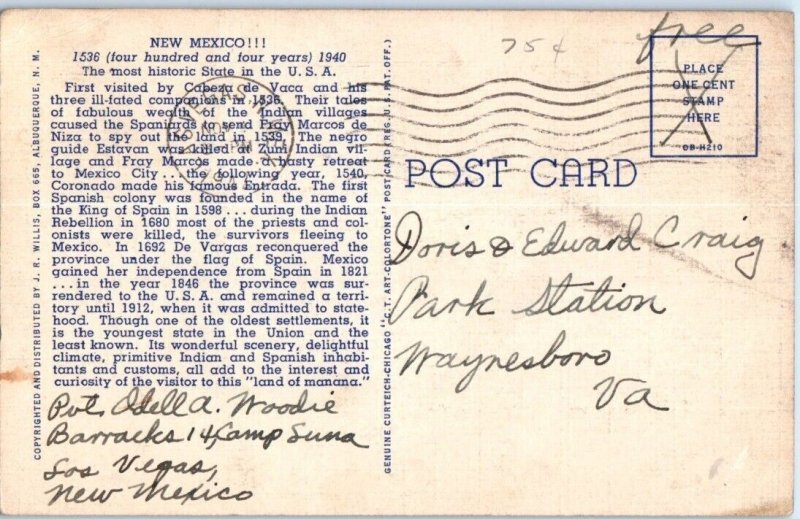 NEW MEXICO!!!
1536 (four hundred and four years) 1940
The most historic State in the U. S. A.
First visited by Cabeza de Vaca and his
three ill-fated companions in 1536. Their tales
of fabulous wealth of the Indian villages
caused the Spaniards to send Fray Marcos de
Niza to spy out the land in 1539. The negro
guide Estavan was killed at Zuni Indian vil-
lage and Fray Marcos made a hasty retreat
to Mexico City . . . the following year, 1540,
Coronado made his famous Entrada. The first
Spanish colony was founded in the name of
the King of Spain in 1598 . . . during the Indian
Rebellion in 1680 most of the priests and col-
onists were killed, the survivors fleeing to
Mexico. In 1692 De Vargas reconquered the
province under the flag of Spain. Mexico
gained her independence from Spain in 1821
. . . in the year 1846 the province was sur-
rendered to the U. S. A. and remained a terri-
tory until 1912, when it was admitted to state-
hood. Though one of the oldest settlements, it
is the youngest state in the Union and the
least known. Its wonderful scenery, delightful
climate, primitive Indian and Spanish inhabi-
tants and customs, all add to the interest and
curiosity of the visitor to this "land of manana."
Pvt. Odell A. Woodie
Barracks 14, Camp Suna
Los Vegas,
New Mexico
COPYRIGHTED AND DISTRIBUTED BY J. R. WILLIS, BOX 665, ALBUQUERQUE, N. M.
GENUINE CURTEICH-CHICAGO "C. T. ART-COLORTONE" POST CARD (REG. U. S. PAT. OFF.)
75¢
free
PLACE
ONE CENT
STAMP
HERE
OB-H210
POST CARD
Doris & Edward Craig
Park Station
Waynesboro
Va